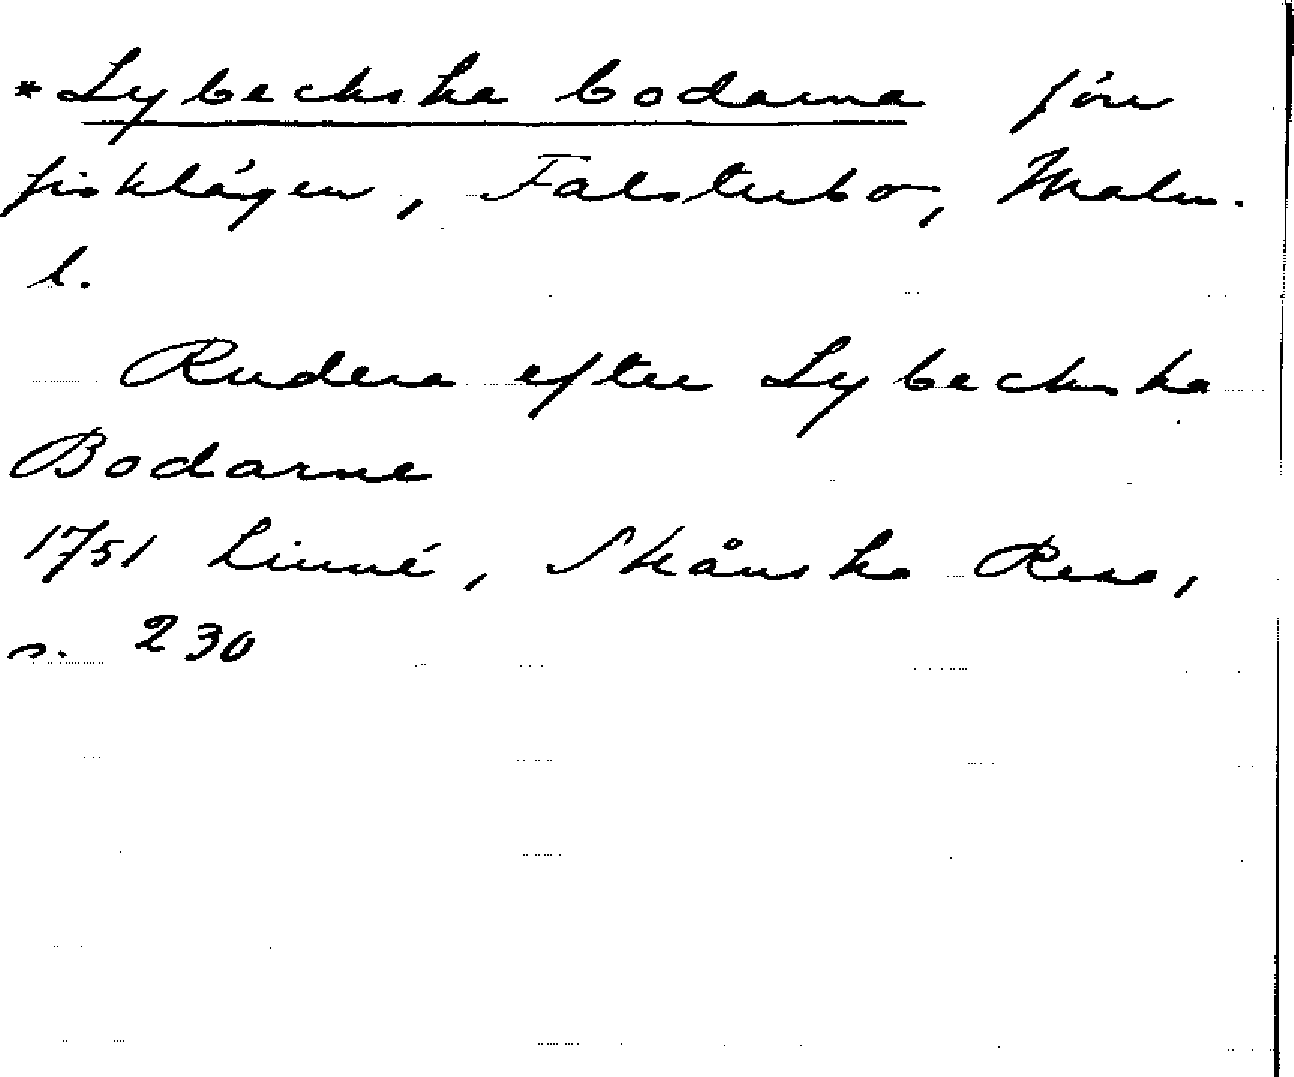 *Lybechska bodarna förr
fiskläger, Falsterbo, Malm.
l.
Rudera efter Lybechska
Bodarne
1751 Linné, Skånska Resa,
s. 230